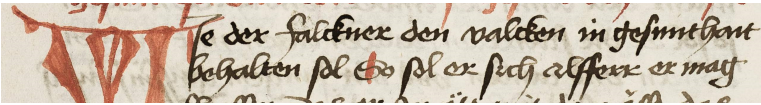 Wie der falckner den valcken in gesunthait
behalten sol So sol er sich alsferr er mag